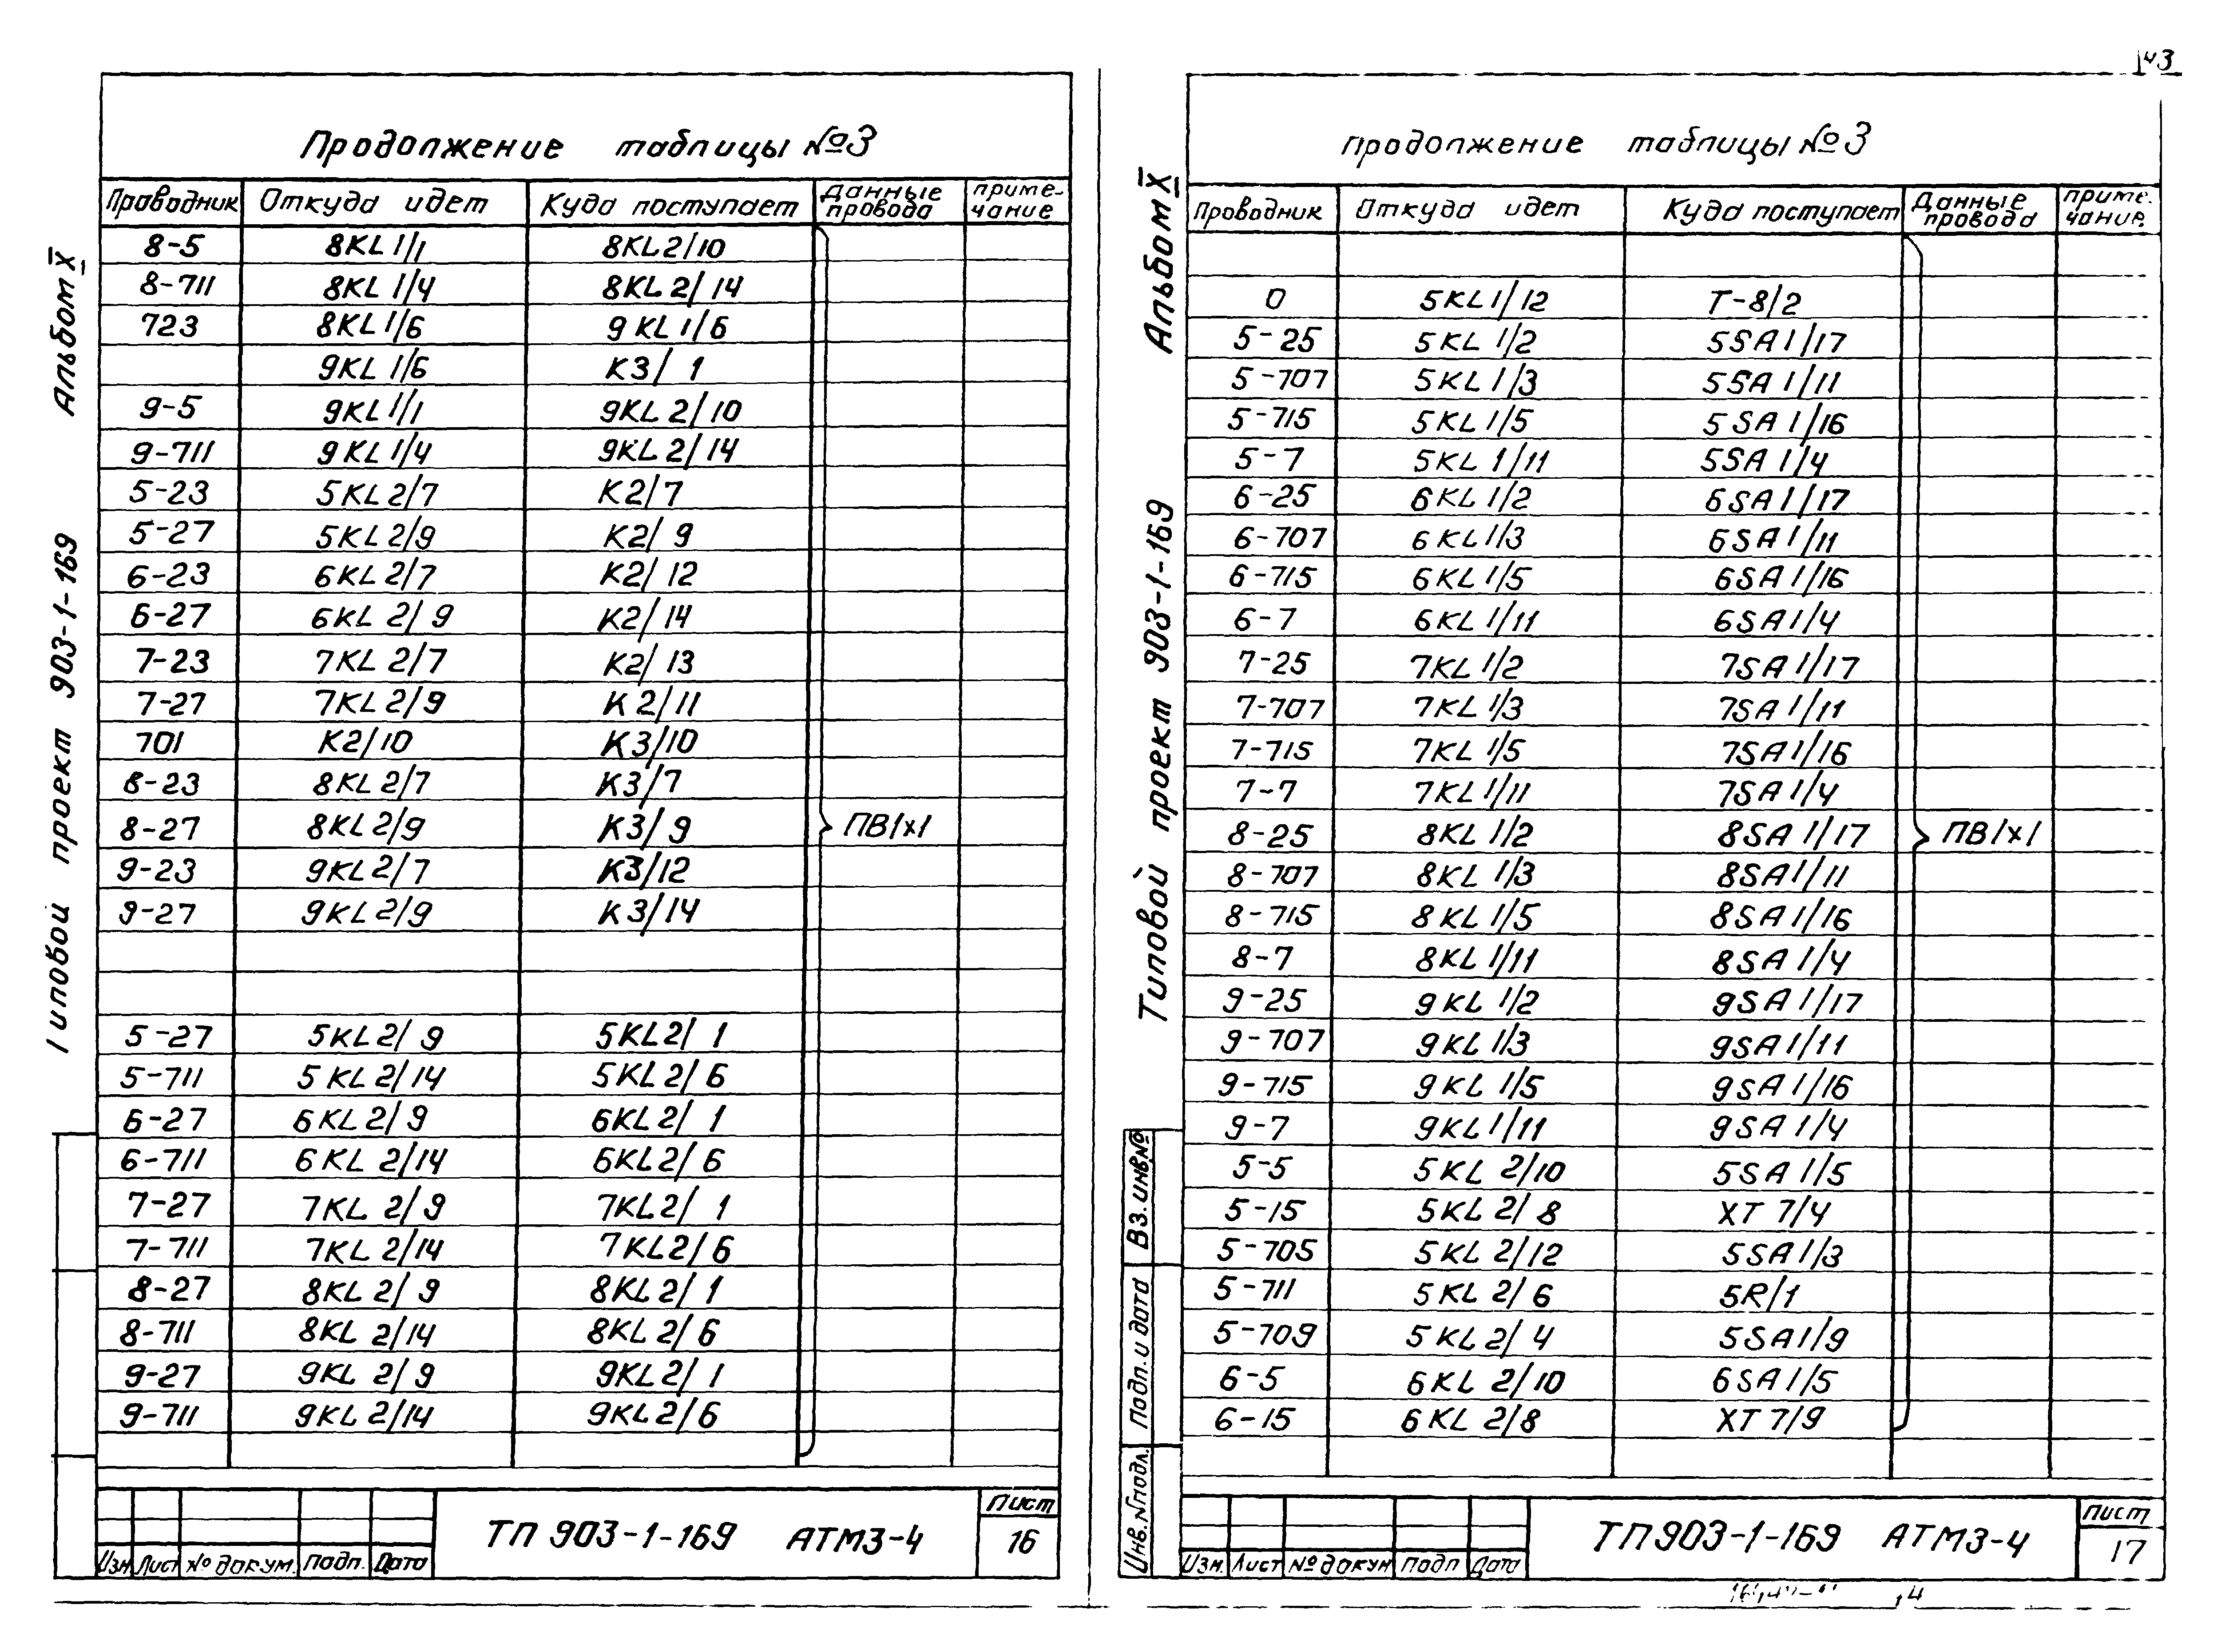 43
Альбом X
Типовой проект 903-1-169
Продолжение таблицы №3
Проводник Откуда идет Куда поступает Данные провода приме-чание
8-5 8KL1/1 8KL2/10
8-711 8KL1/4 8KL2/14
723 8KL1/6 9KL1/6
9KL1/6 К3/1
9-5 9KL1/1 9KL2/10
9-711 9KL1/4 9KL2/14
5-23 5KL2/7 К2/7
5-27 5KL2/9 К2/9
6-23 6KL2/7 К2/12
6-27 6KL2/9 К2/14
7-23 7KL2/7 К2/13
7-27 7KL2/9 К2/11
701 К2/10 К3/10
8-23 8KL2/7 К3/7
8-27 8KL2/9 К3/9 ПВ1х1
9-23 9KL2/7 К3/12
9-27 9KL2/9 К3/14
5-27 5KL2/9 5KL2/1
5-711 5KL2/14 5KL2/6
6-27 6KL2/9 6KL2/1
6-711 6KL2/14 6KL2/6
7-27 7KL2/9 7KL2/1
7-711 7KL2/14 7KL2/6
8-27 8KL2/9 8KL2/1
8-711 8KL2/14 8KL2/6
9-27 9KL2/9 9KL2/1
9-711 9KL2/14 9KL2/6
Изм. Лист № докум. Подп. Дата
ТП 903-1-169 АТМ3-4
Лист
16
Альбом X
Типовой проект 903-1-169
Продолжение таблицы №3
Проводник Откуда идет Куда поступает Данные провода приме-чание.
0 5KL1/12 Т-8/2
5-25 5KL1/2 5SA1/17
5-707 5KL1/3 5SA1/11
5-715 5KL1/5 5SA1/16
5-7 5KL1/11 5SA1/4
6-25 6KL1/2 6SA1/17
6-707 6KL1/3 6SA1/11
6-715 6KL1/5 6SA1/16
6-7 6KL1/11 6SA1/4
7-25 7KL1/2 7SA1/17
7-707 7KL1/3 7SA1/11
7-715 7KL1/5 7SA1/16
7-7 7KL1/11 7SA1/4
8-25 8KL1/2 8SA1/17 ПВ1х1
8-707 8KL1/3 8SA1/11
8-715 8KL1/5 8SA1/16
8-7 8KL1/11 8SA1/4
9-25 9KL1/2 9SA1/17
9-707 9KL1/3 9SA1/11
9-715 9KL1/5 9SA1/16
9-7 9KL1/11 9SA1/4
5-5 5KL2/10 5SA1/5
5-15 5KL2/8 XT7/4
5-705 5KL2/12 5SA1/3
5-711 5KL2/6 5R/1
5-709 5KL2/4 5SA1/9
6-5 6KL2/10 6SA1/5
6-15 6KL2/8 XT7/9
Вз.инв.№
Подп. и дата
Инв.№подл.
Изм. Лист № докум Подп Дата
ТП903-1-169 АТМ3-4
Лист
17